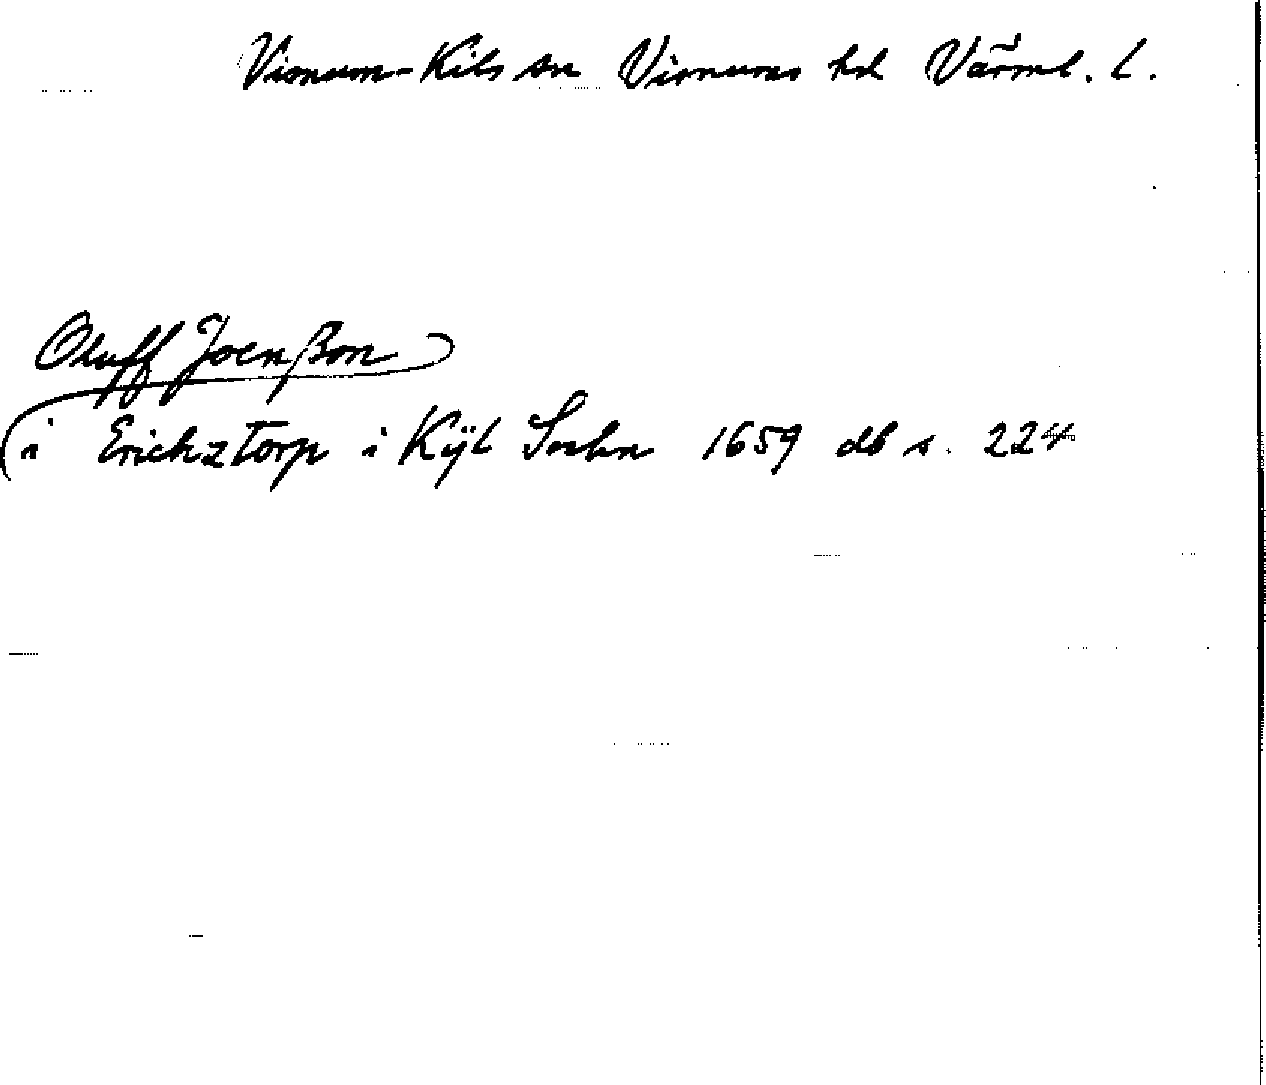 Visnum-Kils sn Visnums hd Värml. L.
Oluff Joenßon
i Erickztorp i Kijl Sochn 1659 db s. 224